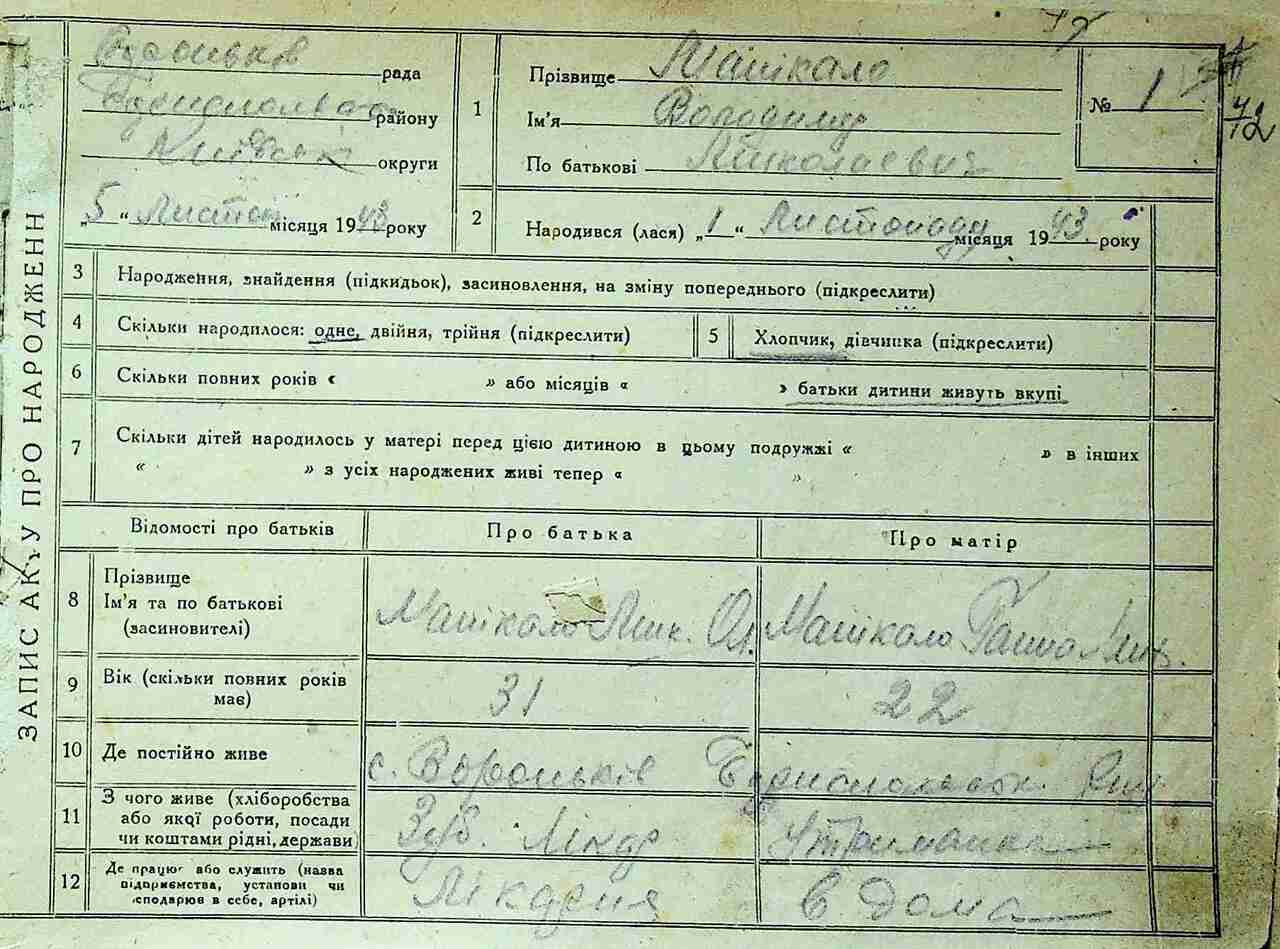 ЗАПИС АКТУ ПРО НАРОДЖЕНН
рада
району
округи
„5“ Листоп місяця 1943 року
1
Прізвище
Ім'я Володимир
По батькові Миколаевич
№ 1
2
Народився (лася) „1“ Листопаду місяця 1943 року
3
Народження, знайдення (підкидьок), засиновлення, на зміну попереднього (підкреслити)
4
Скільки народилося: одне, двійня, трійня (підкреслити)
5
Хлопчик, дівчинка (підкреслити)
6
Скільки повних років « » або місяців « » батьки дитини живуть вкупі
7
Скільки дітей народилось у матері перед цією дитиною в цьому подружжі « » в інших
« » з усіх народжених живі тепер « »
Відомості про батьків
Про батька
Про матір
8
Прізвище
Ім'я та по батькові
(засиновителі)
9
Вік (скільки повних років
має)
31
22
10
Де постійно живе
с. Вороньків
11
З чого живе (хліборобства
або якої роботи, посади
чи коштами рідні, держави
Зуб. Лікар
Утриманка
12
Де працює або служить (назва
підприємства, установи чи
господарює в себе, артілі)
Лікарня
в дома